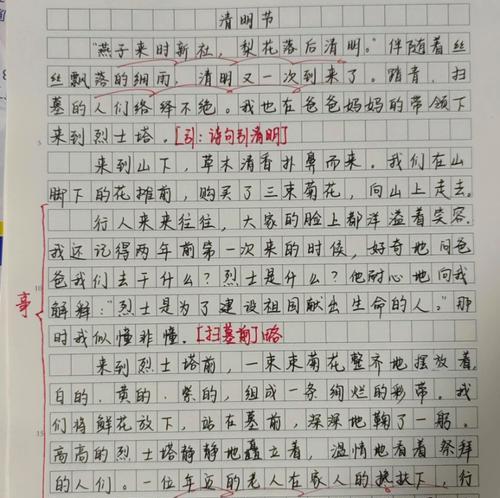 清明节
“燕子来时新社，梨花落后清明。”伴随着丝
丝飘落的细雨，清明又一次到来了。踏青、扫
墓的人们络绎不绝。我也在爸爸妈妈的带领下
5
来到烈士塔。[引：诗句引清明]
来到山下，草木清香扑鼻而来。我们在山
脚下的花摊前，购买了三束菊花，向山上走去。
行人来来往往，大家的脸上都洋溢着笑容。
我还记得两年前第一次来的时候，好奇地问爸
10
爸我们去干什么？烈士是什么？他耐心地向我
事
解释：“烈士是为了建设祖国献出生命的人。”那
时我似懂非懂。[扫墓前]略
来到烈士塔前，一束束菊花整齐地摆放着，
白的、黄的、紫的，组成一条绚烂的彩带。我
15
们将鲜花放下，站在墓前，深深地鞠了一躬。
高高的烈士塔静静地矗立着，温情地看着祭拜
的人们。一位年迈的老人在家人的搀扶下，行